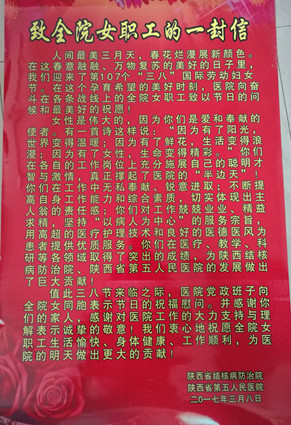 致全院女职工的一封信
人间最美三月天，春花烂漫展新颜。
在这春意融融、万物复苏的美好的日子里，
我们迎来了第107个“三八”国际劳动妇女
节。在这个孕育希望的美好时刻，医院向奋
斗在各条战线上的全院女职工致以节日的问
候和最美好的祝愿！
女性是伟大的，因为你们是爱和奉献的
使者。有一首诗这样说：“因为有了阳光，
世界变得温暖；因为有了鲜花，生活变得浪
漫；因为有了女性，生命变得精彩。”你们
在各自的工作岗位上充分施展自己的聪明才
智与激情，真正撑起了医院的“半边天”！
你们在工作中无私奉献、锐意进取；不断提
高自身工作能力和综合素质，切实体现出主
人翁的责任感；你们对工作兢兢业业、精益
求精，坚持“以病人为中心”的服务宗旨，
用高超的医疗护理技术和良好的医德医风为
患者提供优质服务。你们在医疗、教学、科
研等各领域取得了突出的成绩，为陕西结核
病防治院、陕西省第五人民医院的发展做出
了巨大贡献！
值此三八节来临之际，医院党政班子向
全院女同胞表示节日的祝福慰问。并感谢你
们的家人，感谢对医院工作的大力支持与理
解表示诚挚的敬意！我们衷心地祝愿全院女
职工生活愉快、身体健康、工作顺利，为医
院的明天做出更大的贡献！
陕西省结核病防治院
陕西省第五人民医院
二〇一七年三月八日